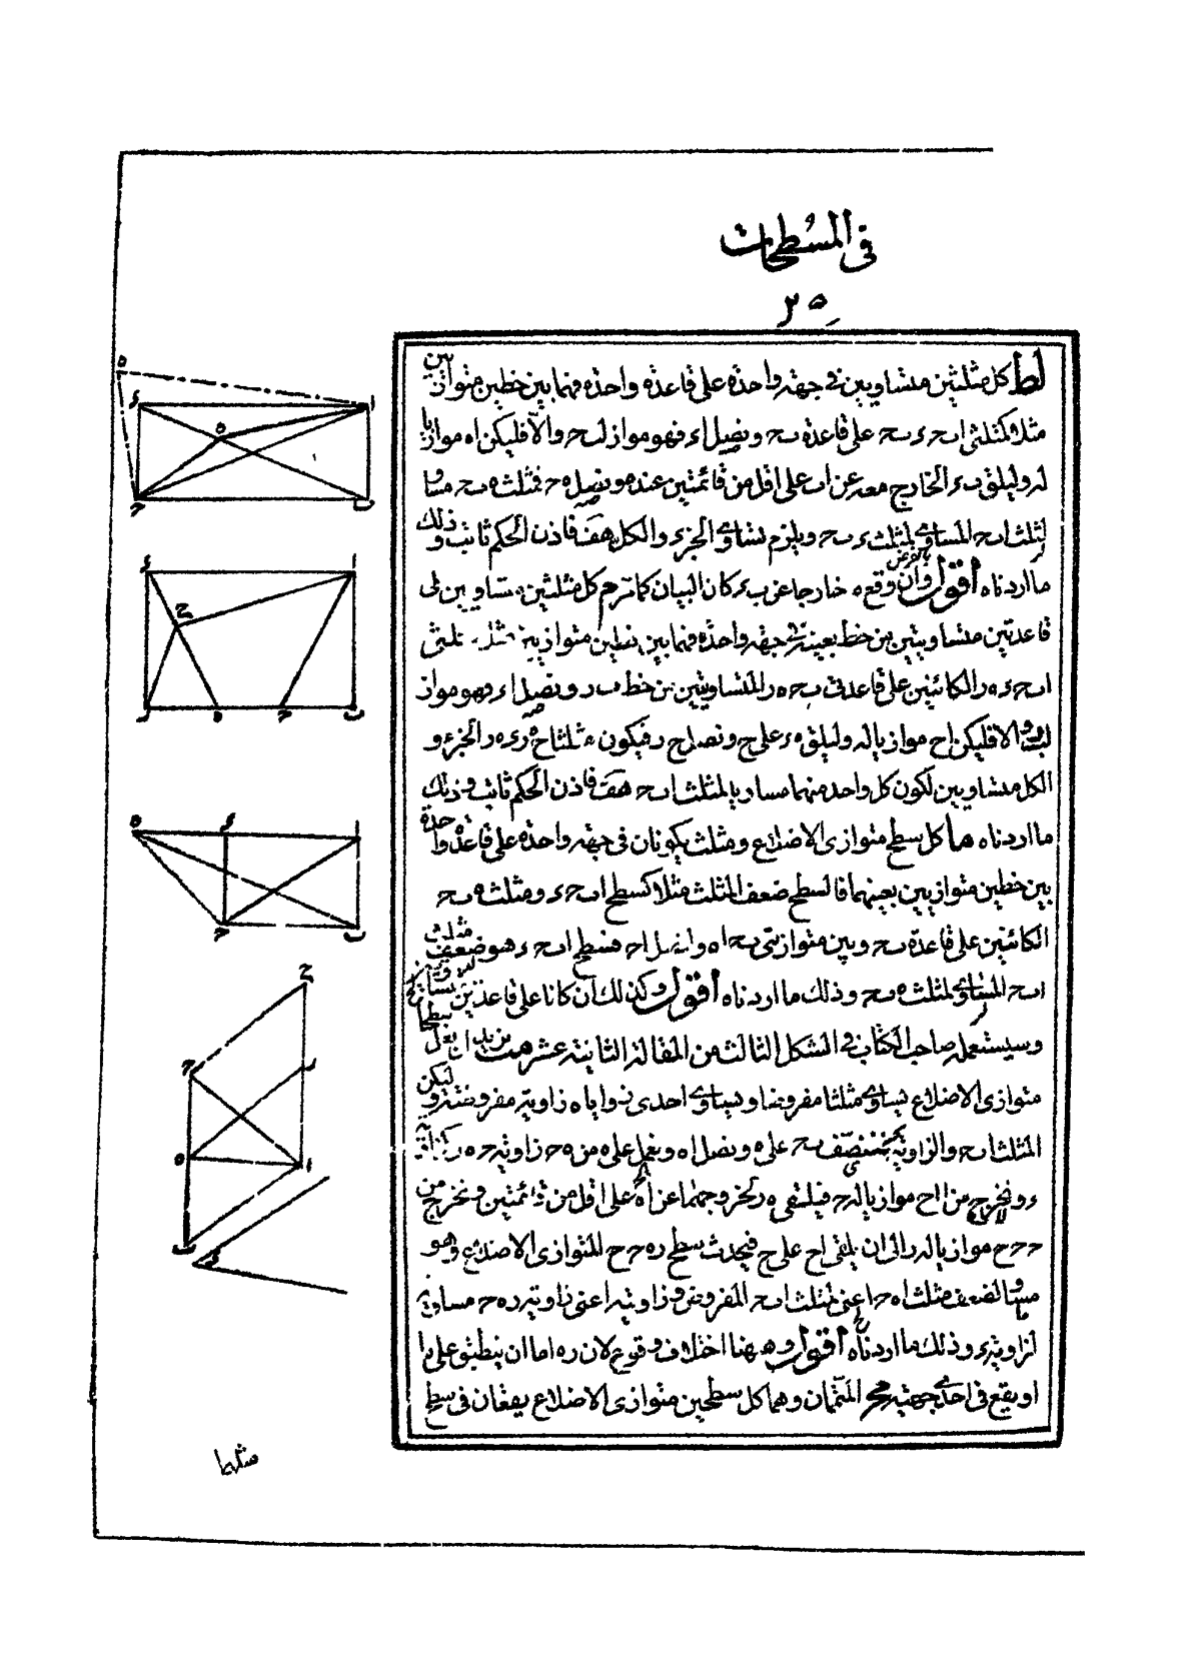 في المسطحات
٢٥
لط كل مثلثين متساويين في جهة واحدة على قاعدة واحدة فهما بين خطين متوازيين
مثلا كمثلثي ا ب ح ء ب ح على قاعدة ب ح ونصل ا ء فهو مواز ل ب ح والا فليكن ا ه موازيا
له وليلق ب ء الخارج معه عن ا ب على اقل من قائمتين عند ه ونصل ه ح فمثلث ه ب ح مساو
لمثلث ا ب ح المساوي لمثلث ء ب ح ويلزم تساوي الجزء والكل هف فاذن الحكم ثابت وذلك
ما اردناه اقول وان وقع ه خارجا عن ب ء كان البيان كما مر م كل مثلثين متساويين على
قاعدتين متساويتين من خط بعينه في جهة واحدة فهما بين خطين متوازيين مثلا كمثلثي
ا ب ح ء ه ر الكائنين على قاعدتي ب ح ه ر المتساويتين من خط ب ر ونصل ا ء فهو مواز
ل ب ر والا فليكن ا ح موازيا له وليلق ه ء على ح ونصل ح ر فيكون مثلثا ح ه ر ء ه ر الجزء و
الكل متساويين لكون كل واحد منهما مساويا لمثلث ا ب ح هف فاذن الحكم ثابت وذلك
ما اردناه ما كل سطح متوازي الاضلاع ومثلث يكونان في جهة واحدة على قاعدة واحدة
بين خطين متوازيين بعينهما فالسطح ضعف المثلث مثلا كسطح ا ب ح ء ومثلث ه ب ح
الكائنين على قاعدة ب ح وبين متوازيي ب ح ا ه ونصل ا ح فسطح ا ب ح ء هو ضعف مثلث
ا ب ح المساوي لمثلث ه ب ح وذلك ما اردناه اقول وكذلك ان كانا على قاعدتين متساويتين
وسيستعمله صاحب الكتاب في الشكل الثالث من المقالة الثانية عشر مب نريد ان نعمل سطحا
متوازي الاضلاع يساوي مثلثا مفروضا ويساوي احدى زواياه زاوية مفروضة وليكن
المثلث ا ب ح والزاوية ء فننصف ب ح على ه ونصل ا ه ونعمل على ه من ه ح زاوية ح ه ر كزاوية
ء ونخرج من ا ا ح موازيا ل ب ح فيلتقي ه ر لخروجهما عن ا ه على اقل من قائمتين ونخرج من
ح ح ح موازيا ل ه ر الى ان يلقى ا ح على ح فيحدث سطح ر ه ح ح المتوازي الاضلاع وهو
مساو لضعف مثلث ا ه ح اعني لمثلث ا ب ح المفروض وزاويته اعني زاوية ر ه ح مساوية
لزاوية ء وذلك ما اردناه اقول وههنا اختلاف وقوع لان ر ه اما ان ينطبق على ا ه
او يقع في احدى جهتيه مج المتممان وهما كل سطحين متوازي الاضلاع يقعان في سطح
مثلهما